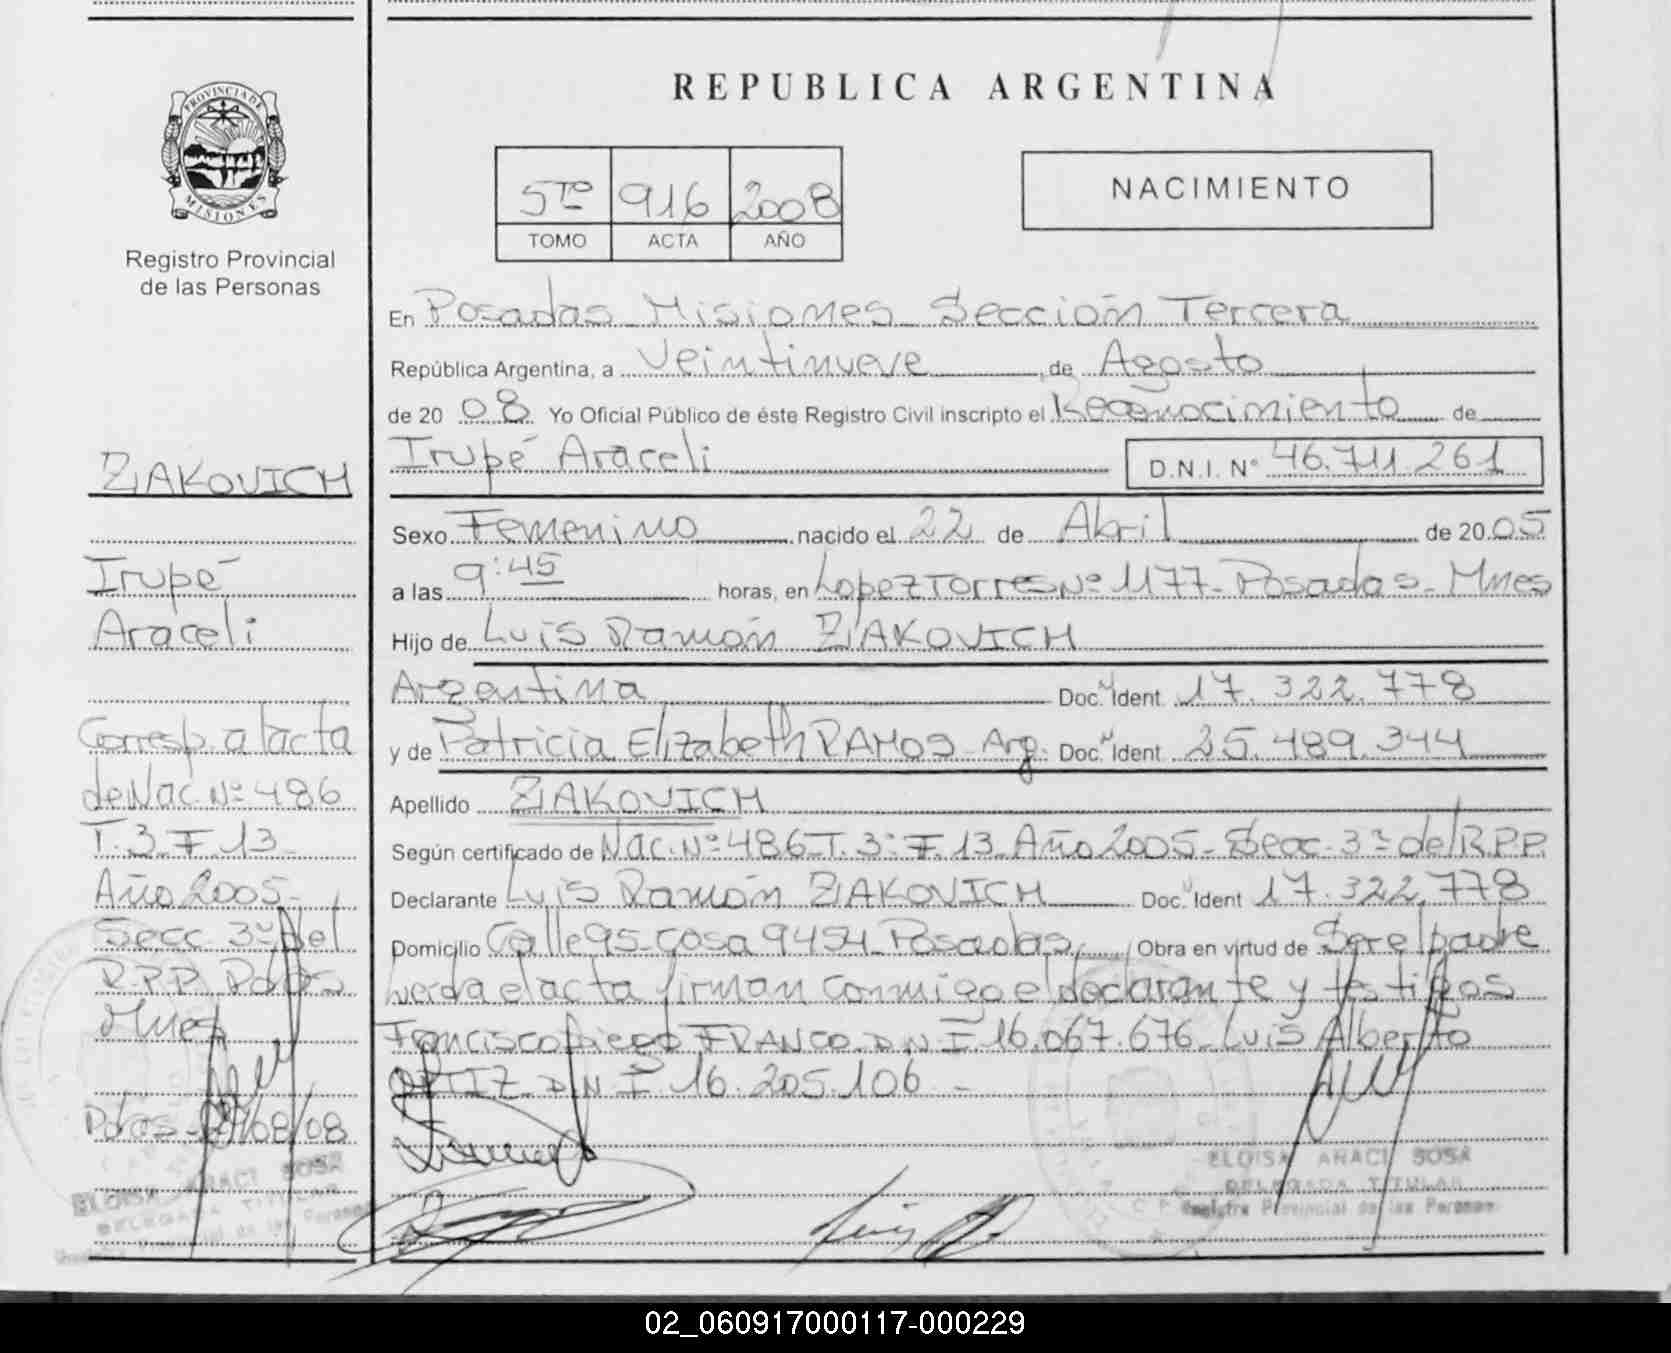 PROVINCIA DE
MISIONES
Registro Provincial
de las Personas
ZIAKOVICH
Irupé
Araceli
Corresp. a l acta
de Nac. Nº 486
T. 3 F 13
Año 2005-
Secc 3º del
R.P.P. Pdas
Mnes
Pdas- 29/08/08
ELOISA ARACI SOSA
DELEGADA TITULAR
Registro Provincial de las Personas
REPUBLICA ARGENTINA
5TO 916 2008
TOMO ACTA AÑO
NACIMIENTO
En Posadas Misiones Sección Tercera
República Argentina, a Veintinueve de Agosto
de 20 08 Yo Oficial Público de éste Registro Civil inscripto el Reconocimiento de
Irupé Araceli D.N.I. N° 46.711.261
Sexo Femenino nacido el 22 de Abril de 20 05
a las 9:45 horas, en Lopez Torres Nº 1177- Posadas- Mnes
Hijo de Luis Ramón ZIAKOVICH
Argentina Doc. Ident 17.322.778
y de Patricia Elizabeth RAMOS- Arg. Doc. Ident 25.489.344
Apellido ZIAKOVICH
Según certificado de Nac. Nº 486 T. 3º F. 13 Año 2005- Secc. 3º del R.P.P.
Declarante Luis Ramón ZIAKOVICH Doc. Ident 17.322.778
Domicilio Calle 95- casa 9454- Posadas Obra en virtud de Ser el padre
Leida el acta firman conmigo el declarante y testigos
Francisco Diego FRANCO D N I 16.067.676- Luis Alberto
ORTIZ D N I 16.205.106 -
ELOISA ARACI SOSA
DELEGADA TITULAR
Registro Provincial de las Personas
02_060917000117-000229